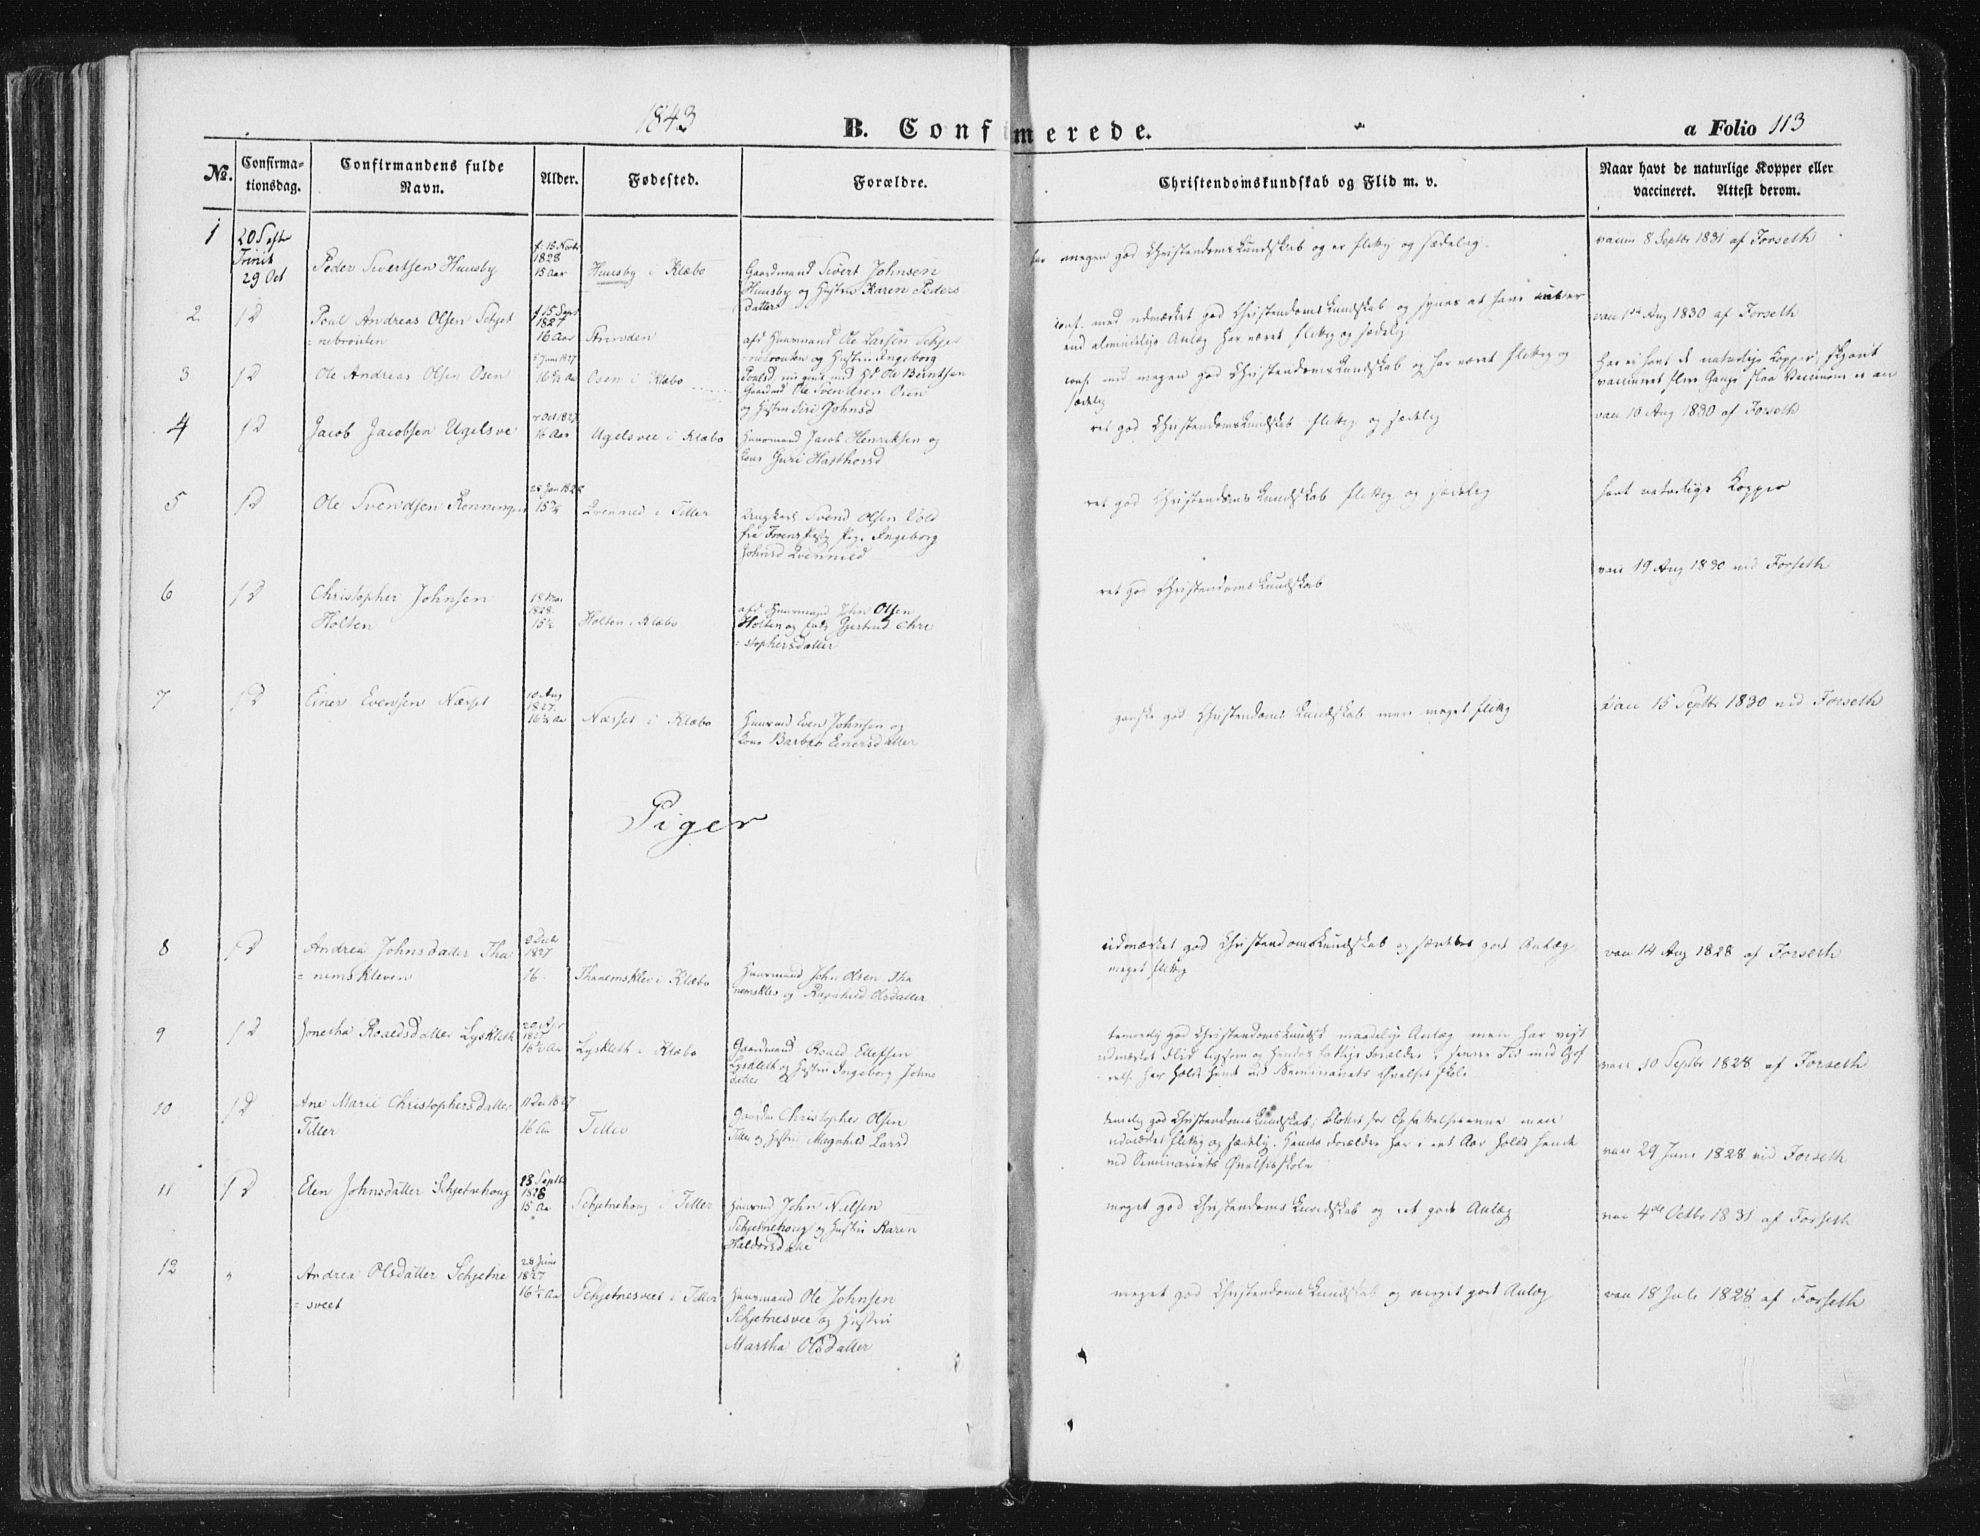 1843
B. Confirmerede.
a Folio 113
No.
Confirmationsdag.
Confirmandens fulde Navn.
Alder.
Fødested.
Forældre.
Christendomskundskab og Flid m. v.
Naar havt de naturlige Kopper eller vaccineret. Attest derom.
1
20 S eft
Trinit
29 Oct
Peder Sivertsen Huusby
f. 15 Novb
1828
15 Aar
Huusby i Klæbo
Gaardmand Sivert Johnsen
Huusby og Hustru Karen Peders
datter
megen god Christendomskundskab og er flittig og sædelig.
vaccin 8 Septbr 1831 af Forseth
2
1 D
Poul Andreas Olsen Schjet
=nebrouten
f 15 Sept
1827
16 Aar
afd Huusmand Ole Larsen Schjet
=nebrouten og Hustru Ingeborg
Poulsd, nu givt med Ole Berntsen
conf. med udmærket god Christendomskundskab og synes at have
end almindelige Anlæg har været flittig og sædelig
vac 1st Aug 1830 af Forseth
3
1 D
Ole Andreas Olsen Osen
5 Juni 1827
16 Aa
Osen i Klæbo
Gaardmd Ole Svendsen Osen
og Hustru Siri Johnsd
conf. med megen god Christendomskundskab og har været flittig og
sædelig
har ei havt de naturlige Kopper, skjønt
vaccineret flere Gange
4
1 D
Jacob Jacobsen Ugelsve
7 Oct 1827
16 Aar
Ugelsvee i Klæbo
Huusmand Jacob Henriksen og
Kone Guri
ret god Christendomskundskab flittig og sædelig
vac 16 Aug 1830 af Forseth
5
1 D
Ole Svendsen Rønningen
28 Jan 1828
15 3/4
Qvenild i Tiller
Ungkarl Svend Olsen
fra Pig. Ingeborg
Johnsd Qvenild
ret god Christendoms Kundskab flittig og sædelig
havt naturlige Kopper
6
1 D
Christopher Johnsen
Holten
18 Mai
1828
15 1/2
Holten i Klæbo
afd Huusmand John Olsen
Holten og Gjertrud Chri
=stophersdatter
ret god Christendoms Kundskab
vac 19 Aug 1830 ved Forseth
7
1 D
Einer Evensen Næsset
10 Aug
1827.
16 1/4 Aa
Næsset i Klæbo
Huusmd Even Johnsen og
Kone Barbro Einersdatter
ganske god Christendoms Kundskab men meget flittig
vac 15 Septbr 1830 ved Forseth
Piger
8
1 D
Andrea Johnsdatter Tha
=nemskleven
9 Decb
1827
16
Thanemsklev i Klæbo
Huusmand John Olsen Tha
nemsklev og Ragnhild Olsdatter
udmærket god Christendomskundskab og særdeles godt Anlæg
meget flittig
vac 14 Aug 1828 af Forseth
9
1 D
Jonetha Roaldsdatter Lyskleth
20 Apr
1827
16 1/2 Aa
Lyskleth i Klæbo
Gaardmand Roald Ellefsen
Lyskleth og Hustru Ingeborg Johns
datter
temmelig god Christendomskundsk maadelige Anlæg men har viist
udmærket Flid ligesom og hendes Forældre i senere Tid med
har holdt hende ved Seminariets Øvelses skole
vac 10 Septbr 1828 af Forseth
10
1 D
Ane Marie Christophersdatter
Tiller
11 Dec 1827
16 Aa
Tiller
Gaardm Christopher Olsen
Tiller og Hustru Magnhild Larsd
temelig god Christendomskundskab; men
udmærket flittig og sædelig. Hendes Forældre har i eet Aar holdt hende
ved Seminariets Øvelsesskole
vac 29 Juni 1828 ved Forseth
11
1 D
Elen Johnsdatter Schjetnehoug
13 Septb
1828
15 Aa
Schjetnehoug i Tiller
Huusmd John Nielsen
Schjetnehoug og Hustru Karen
Haldorsdatte
meget god Christendoms Kundskab og et godt Anlæg
vac 4de Octbr 1831 af Forseth
12
"
Andrea Olsdatter Schjetne
=sveet
28 Juni
1827
16 1/4 Aa
Schjetnesveet i Tiller
Huusmand Ole Johnsen
Schjetnesvee og Hustru
Martha Olsdatter
meget god Christendoms Kundskab og meget godt Anlæg
vac 18 Juli 1828 af Forseth